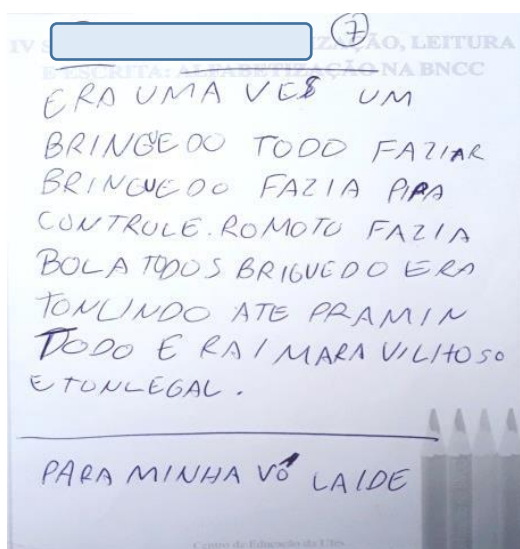 7
IV S ZAÇÃO, LEITURA
E ESCRITA: ALFABETIZAÇÃO NA BNCC
ERA UMA VES UM
BRINGEDO TODO FAZIAR
BRINGUEDO FAZIA PIPA
CONTRULE.ROMOTO FAZIA
BOLA TODOS BRIGUEDO ERA
TONLINDO ATE PRAMIN
TODO E RAI MARA VILIHOSO
E TONLEGAL.
PARA MINHA VÓ LAIDE
Centro de Educação da Ufes